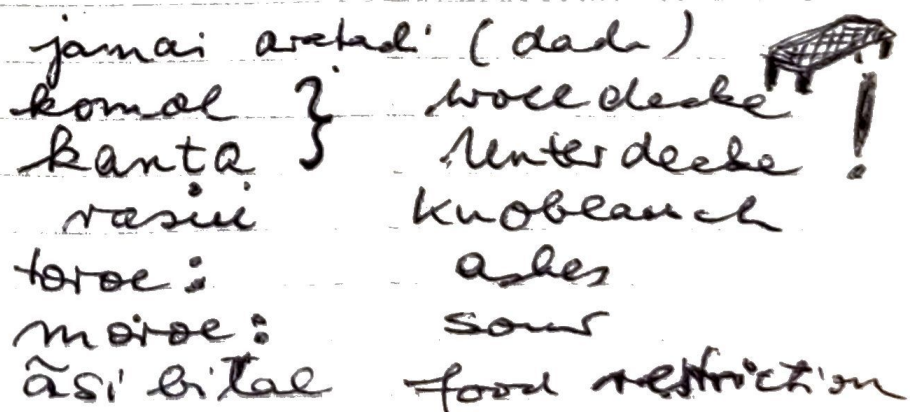 jamai aretadi (dada)
komol } Wolldecke
kanta } Unterdecke !
rasui Knoblauch
toroe: ashes
moroe: sour
ãsi bital food restriction